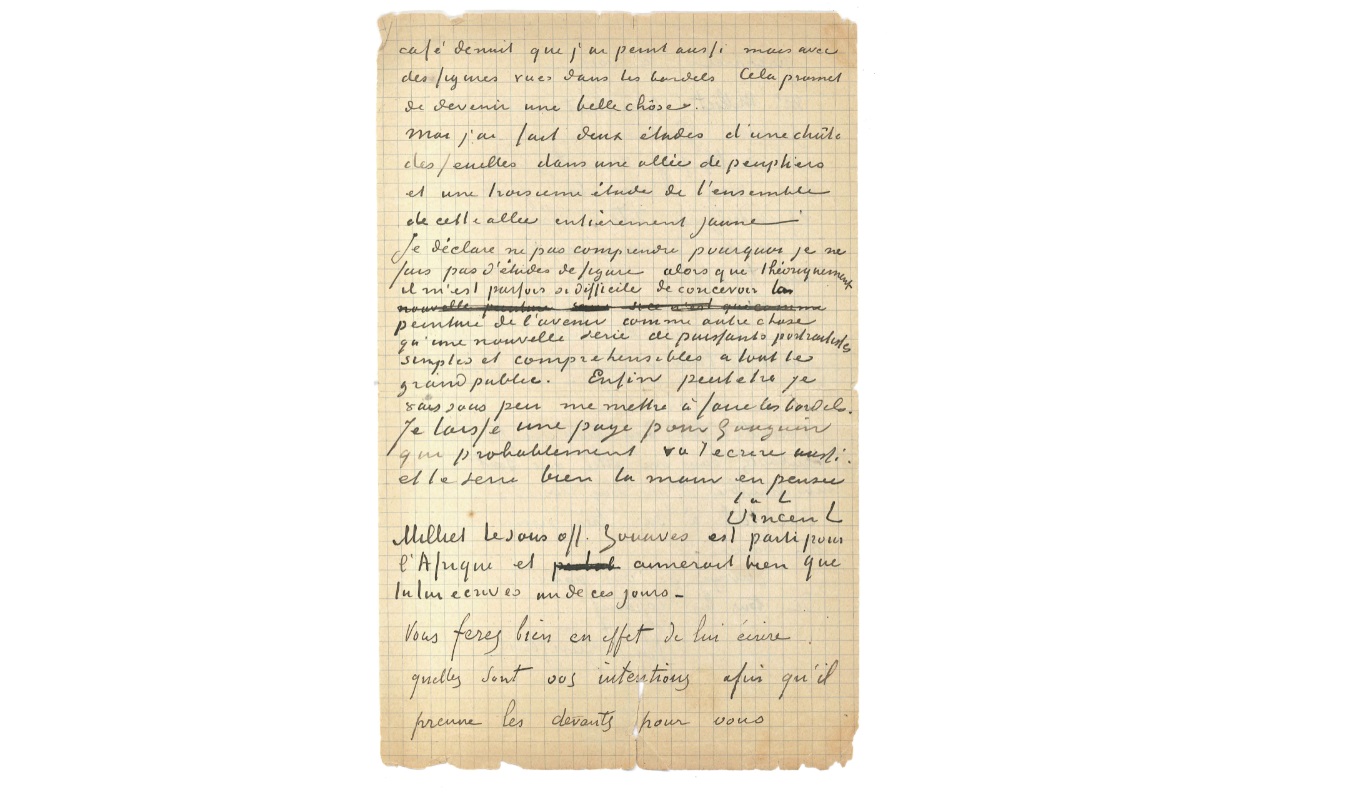 café de nuit que j'ai peint aussi mais avec
des figures vues dans les bordels Cela promet
de devenir une belle chôse.
moi j'ai fait deux études d'une chûte
des feuilles dans une allée de peupliers
et une troisieme étude de l'ensemble
de cette allee entièrement jaune
Je déclare ne pas comprendre pourquoi je ne
fais pas d'études de figure alors que théoriquement
il m'est parfois si difficile de concevoir la
nouvelle peinture
peinture de l'avenir comme autre chose
qu'une nouvelle serie de puissants portraitistes
simples et comprehensibles a tout le
grand public. Enfin peutetre je
vais sous peu me mettre à faire les bordels.
Je laisse une page pour Gauguin
qui probablement va t'ecrire aussi.
et te serre bien la main en pensee
t à t
Vincent
Milliet le sous off. Zouaves est parti pour
l'Afrique et aimerait bien que
tu lui ecrives un de ces jours –
Vous ferez bien en effet de lui écrire
quelles sont vos intentions afin qu'il
prenne les devants pour vous